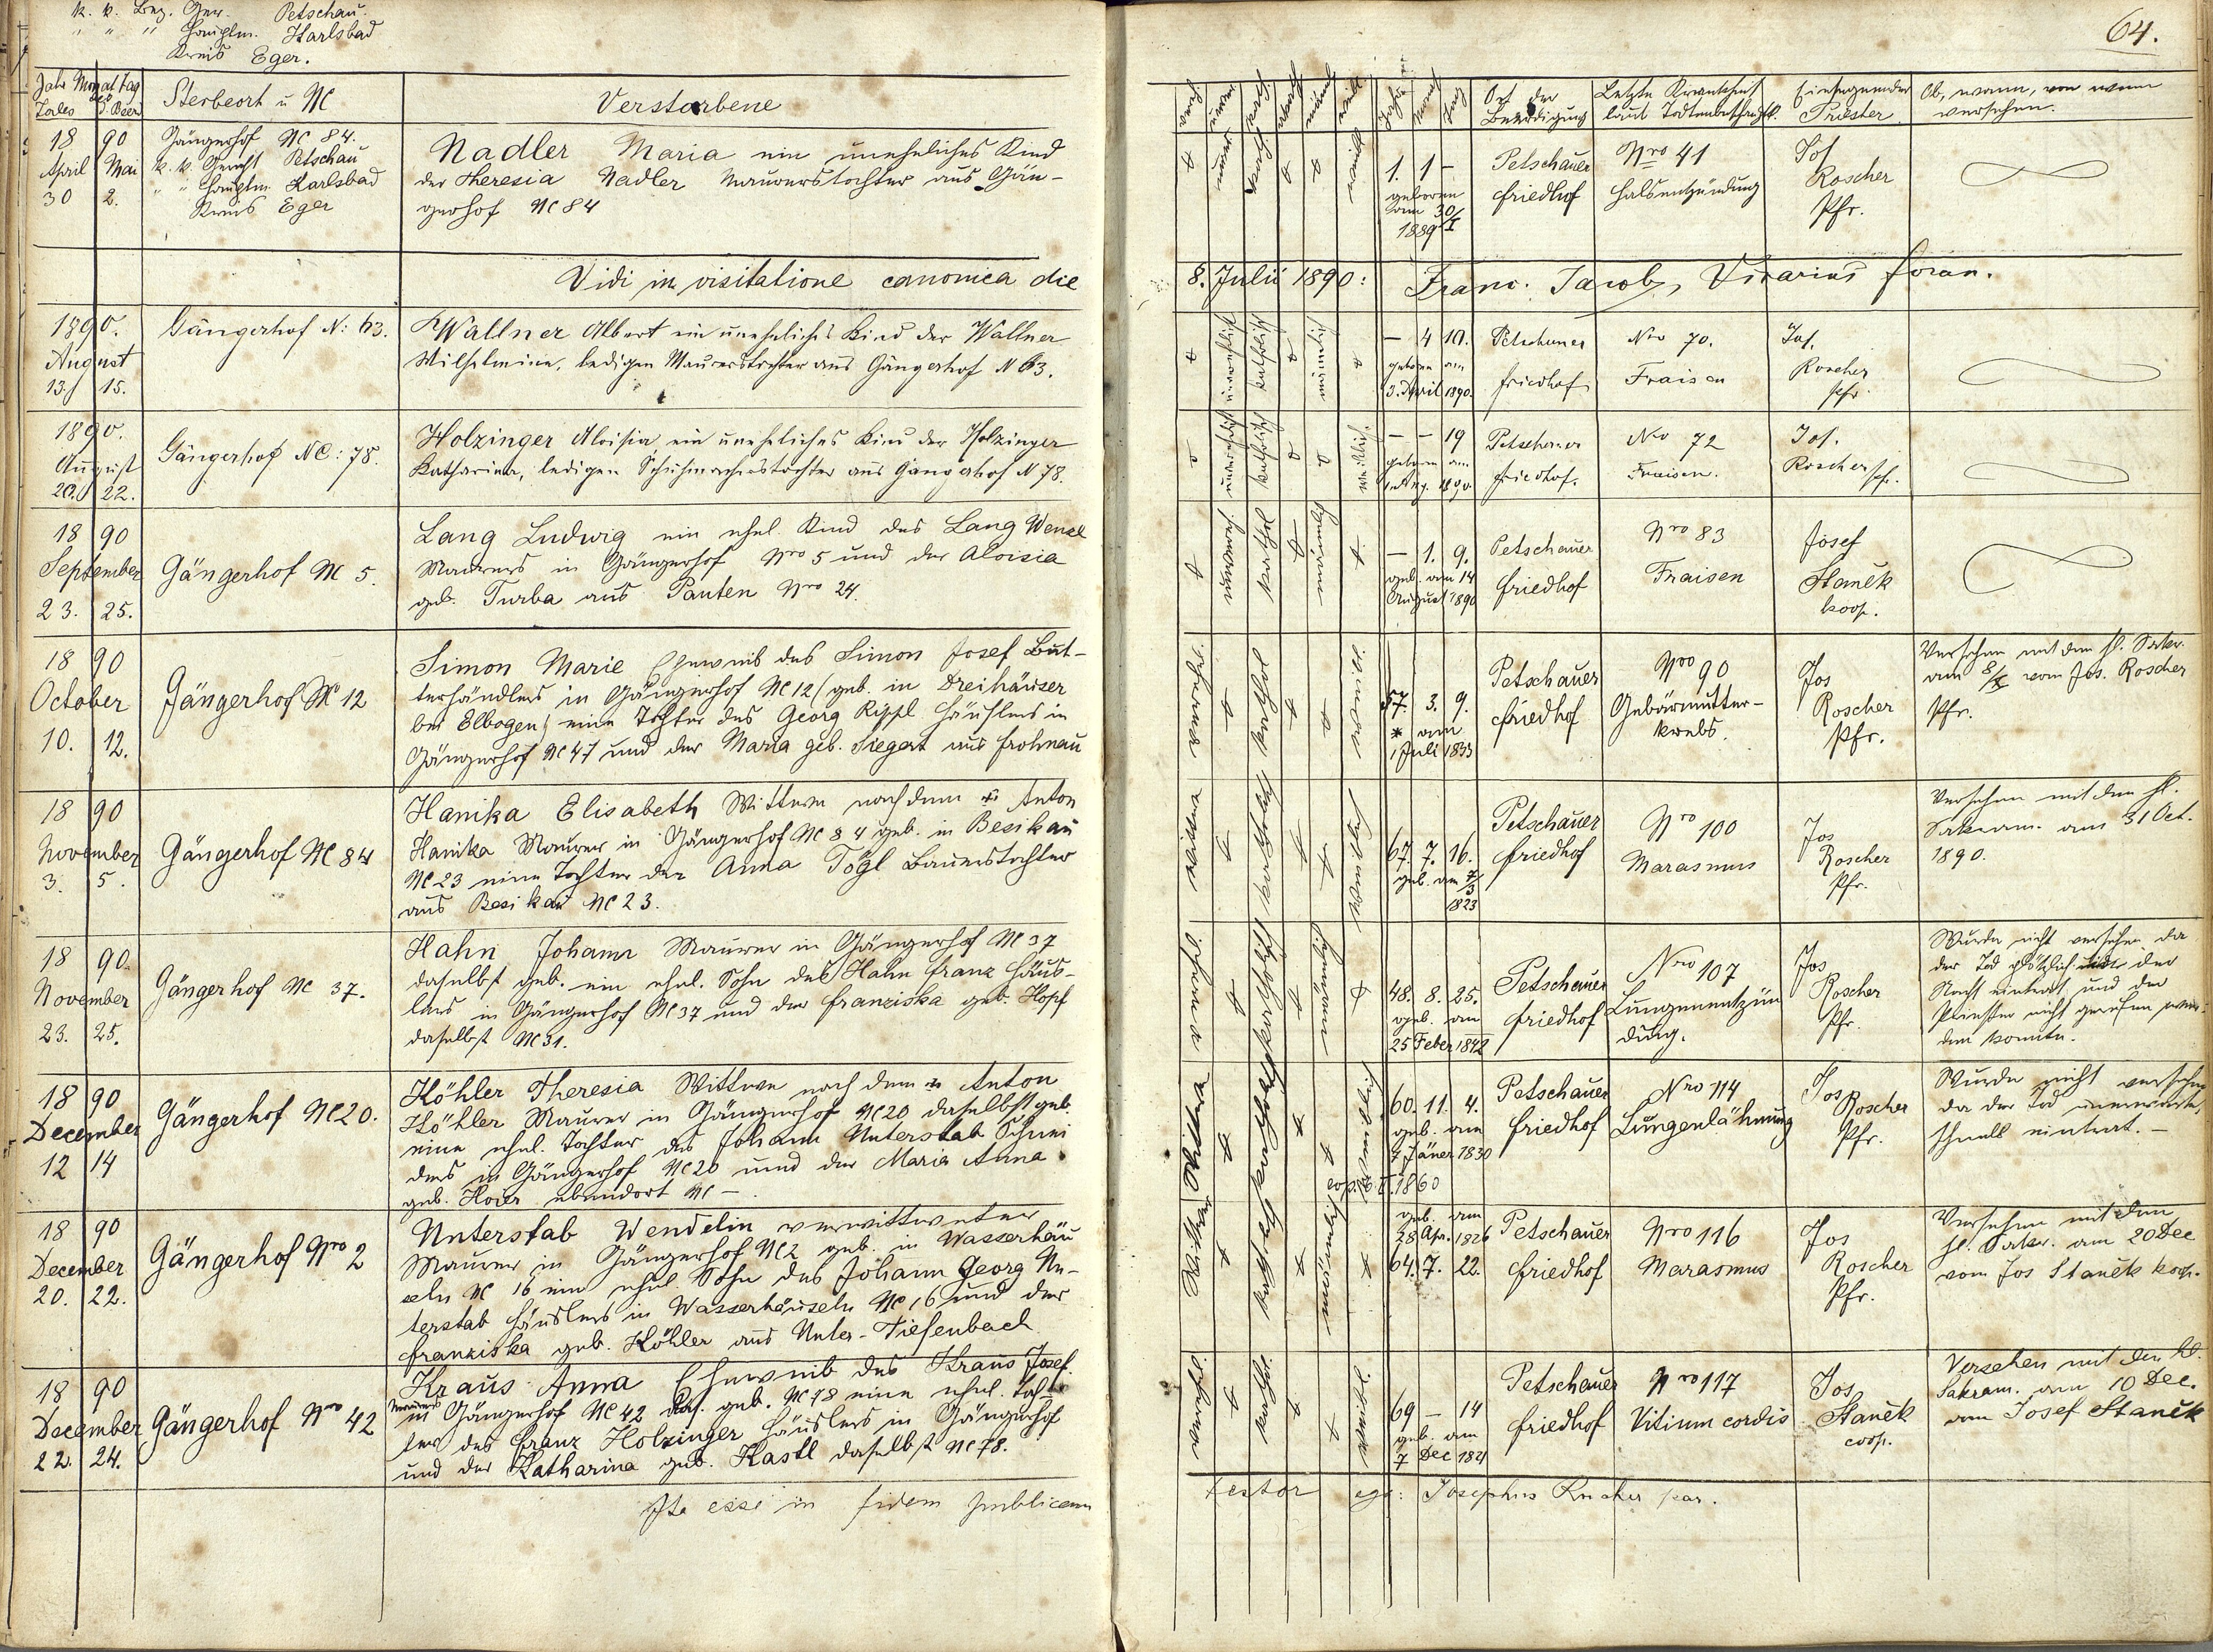 k. k. Bez. Ger. Petschau
" " " Hauptm. Karlsbad
Kreis Eger.
64.
Jahr Monat Tag
des
Todes d. Beerd
Sterbeort u NC
Verstorbene
Jahre
Monat
Tag
Ort der
Beerdigung
Letzte Krankheit
laut Todtenbeschauz.
Einsegnender
Priester
Ob, wann, von wem
versehen.
18 90
April Mai
30 2.
Gängerhof NC 84.
k. k. Gericht Petschau
" " Hauptm Karlsbad
Kreis Eger
Nadler Maria ein uneheliches Kind
der Theresia Nadler Maurerstochter aus Gän-
gerhof NC 84
1. 1 –
geboren
am 30/I
1889
Petschauer
Friedhof
Nro 41
Halsentzündung
Jos
Roscher
Pfr.
Vidi in visitatione canonica die
8. Julii 1890: Franc. Jacob, Vicarius foran.
1890.
August
13. 15.
Gängerhof N: 63.
Wallner Albert ein uneheliches Kind der Wallner
Wilhelmine, ledigen Maurerstochter aus Gängerhof N 63.
– 4 10.
geboren am
3. April 1890.
Petschauer
Friedhof
Nro 70.
Fraisen
Jos.
Roscher
Pfr
1890.
August
20. 22.
Gängerhof NC: 78.
Holzinger Aloisia ein uneheliches Kind der Holzinger
Katharina, ledigen Schuhmacherstochter aus Gängerhof N 78.
weiblich.
– – 19
geboren am
1890.
Petschauer
Friedhof.
Nro 72
Fraisen.
Jos.
Roscher Pfr.
18 90
September
23. 25.
Gängerhof NC 5.
Lang Ludwig ein ehel. Kind des Lang Wenzl
Maurers in Gängerhof Nro 5 und der Aloisia
geb. Turba aus Pauten Nro 24.
– 1. 9.
geb. am 14
August 1890
Petschauer
Friedhof
Nro 83
Fraisen
Josef
Staněk
koop.
18 90
October
10. 12.
Gängerhof NC 12
Simon Marie Eheweib des Simon Josef But-
terhändlers in Gängerhof NC 12 (geb. in Dreihäuser
bei Elbogen) eine Tochter des Georg Rippl Häuslers in
Gängerhof NC 47 und der Maria geb. Siegert aus Frohnau
57. 3. 9.
* am
1 Juli 1833
Petschauer
Friedhof
Nro 90
Gebärmutter-
krebs.
Jos
Roscher
Pfr.
Versehen mit den hl. Sakr.
am 8/X vom Jos. Roscher
Pfr.
18 90
November
3. 5.
Gängerhof NC 84
Hanika Elisabeth Wittwe nach dem + Anton
Hanika Maurer in Gängerhof NC 84 geb. in Besikau
NC 23 eine Tochter der Anna Tögl Bauerstochter
aus Besikau NC 23.
67. 7. 16.
geb. am
1823
Petschauer
Friedhof
Nro 100
Marasmus
Jos
Roscher
Pfr.
Versehen mit den hl.
Sakram. am 31 Oct.
1890.
18 90.
November
23. 25.
Gängerhof NC 37.
Hahn Johann Maurer in Gängerhof NC 37
daselbst geb. ein ehel. Sohn des Hahn Franz Häus-
lers in Gängerhof NC 37 und der Franziska geb. Hopf
daselbst NC 31.
48. 8. 25.
geb. am
25 Feber 1842
Petschauer
Friedhof
Nro 107
Lungenentzün
dung.
Jos
Roscher
Pfr.
Wurde nicht versehen da
der Tod plötzlich der
Nacht eintrat und der
Priester nicht gerufen wer-
den konnte.
18 90
December
12 14
Gängerhof NC 20.
Köhler Theresia Wittwe nach dem + Anton
Köhler Maurer in Gängerhof NC 20 daselbst geb.
eine ehel. Tochter des Johann Unterstab Schnei
ders in Gängerhof NC 20 und der Maria Anna
geb. Hoier ebendort NC –.
60. 11. 4.
geb. am
7 Jäner 1830
1860
Petschauer
Friedhof
Nro 114
Lungenlähmung
Jos
Roscher
Pfr.
Wurde nicht versehen
da der Tod unerwartet
schnell eintrat. –
18 90
December
20. 22.
Gängerhof Nro 2
Unterstab Wendelin verwittweter
Maurer in Gängerhof NC 2 geb. in Wasserhäu
seln NC 16 ein ehel Sohn des Johann Georg Un-
terstab Häuslers in Wasserhäuseln NC 16 und der
Franziska geb. Köhler aus Unter-Tiefenbach
geb. am
28 Apr. 1826
64. 7. 22.
Petschauer
Friedhof
Nro 116
Marasmus
Jos
Roscher
Pfr.
Versehen mit den
hl. Sakr. am 20 Dec
vom Jos Staněk koop.
18 90
December
22. 24.
Gängerhof Nro 42
Kraus Anna Eheweib des Kraus Josef.
Maurers
in Gängerhof NC 42 das. geb. NC 78 eine ehel. Toch-
ter des Franz Holzinger Häuslers in Gängerhof
und der Katharina geb. Kastl daselbst NC 78.
69 – 14
geb. am
7 Dec 1821
Petschauer
Friedhof
Nro 117
Vitium cordis
Jos
Staněk
coop.
Versehen mit den hl.
Sakram. am 10 Dec.
Josef Staněk
Ita esse in fidem publicam
testor ego: Josephus Roscher par.